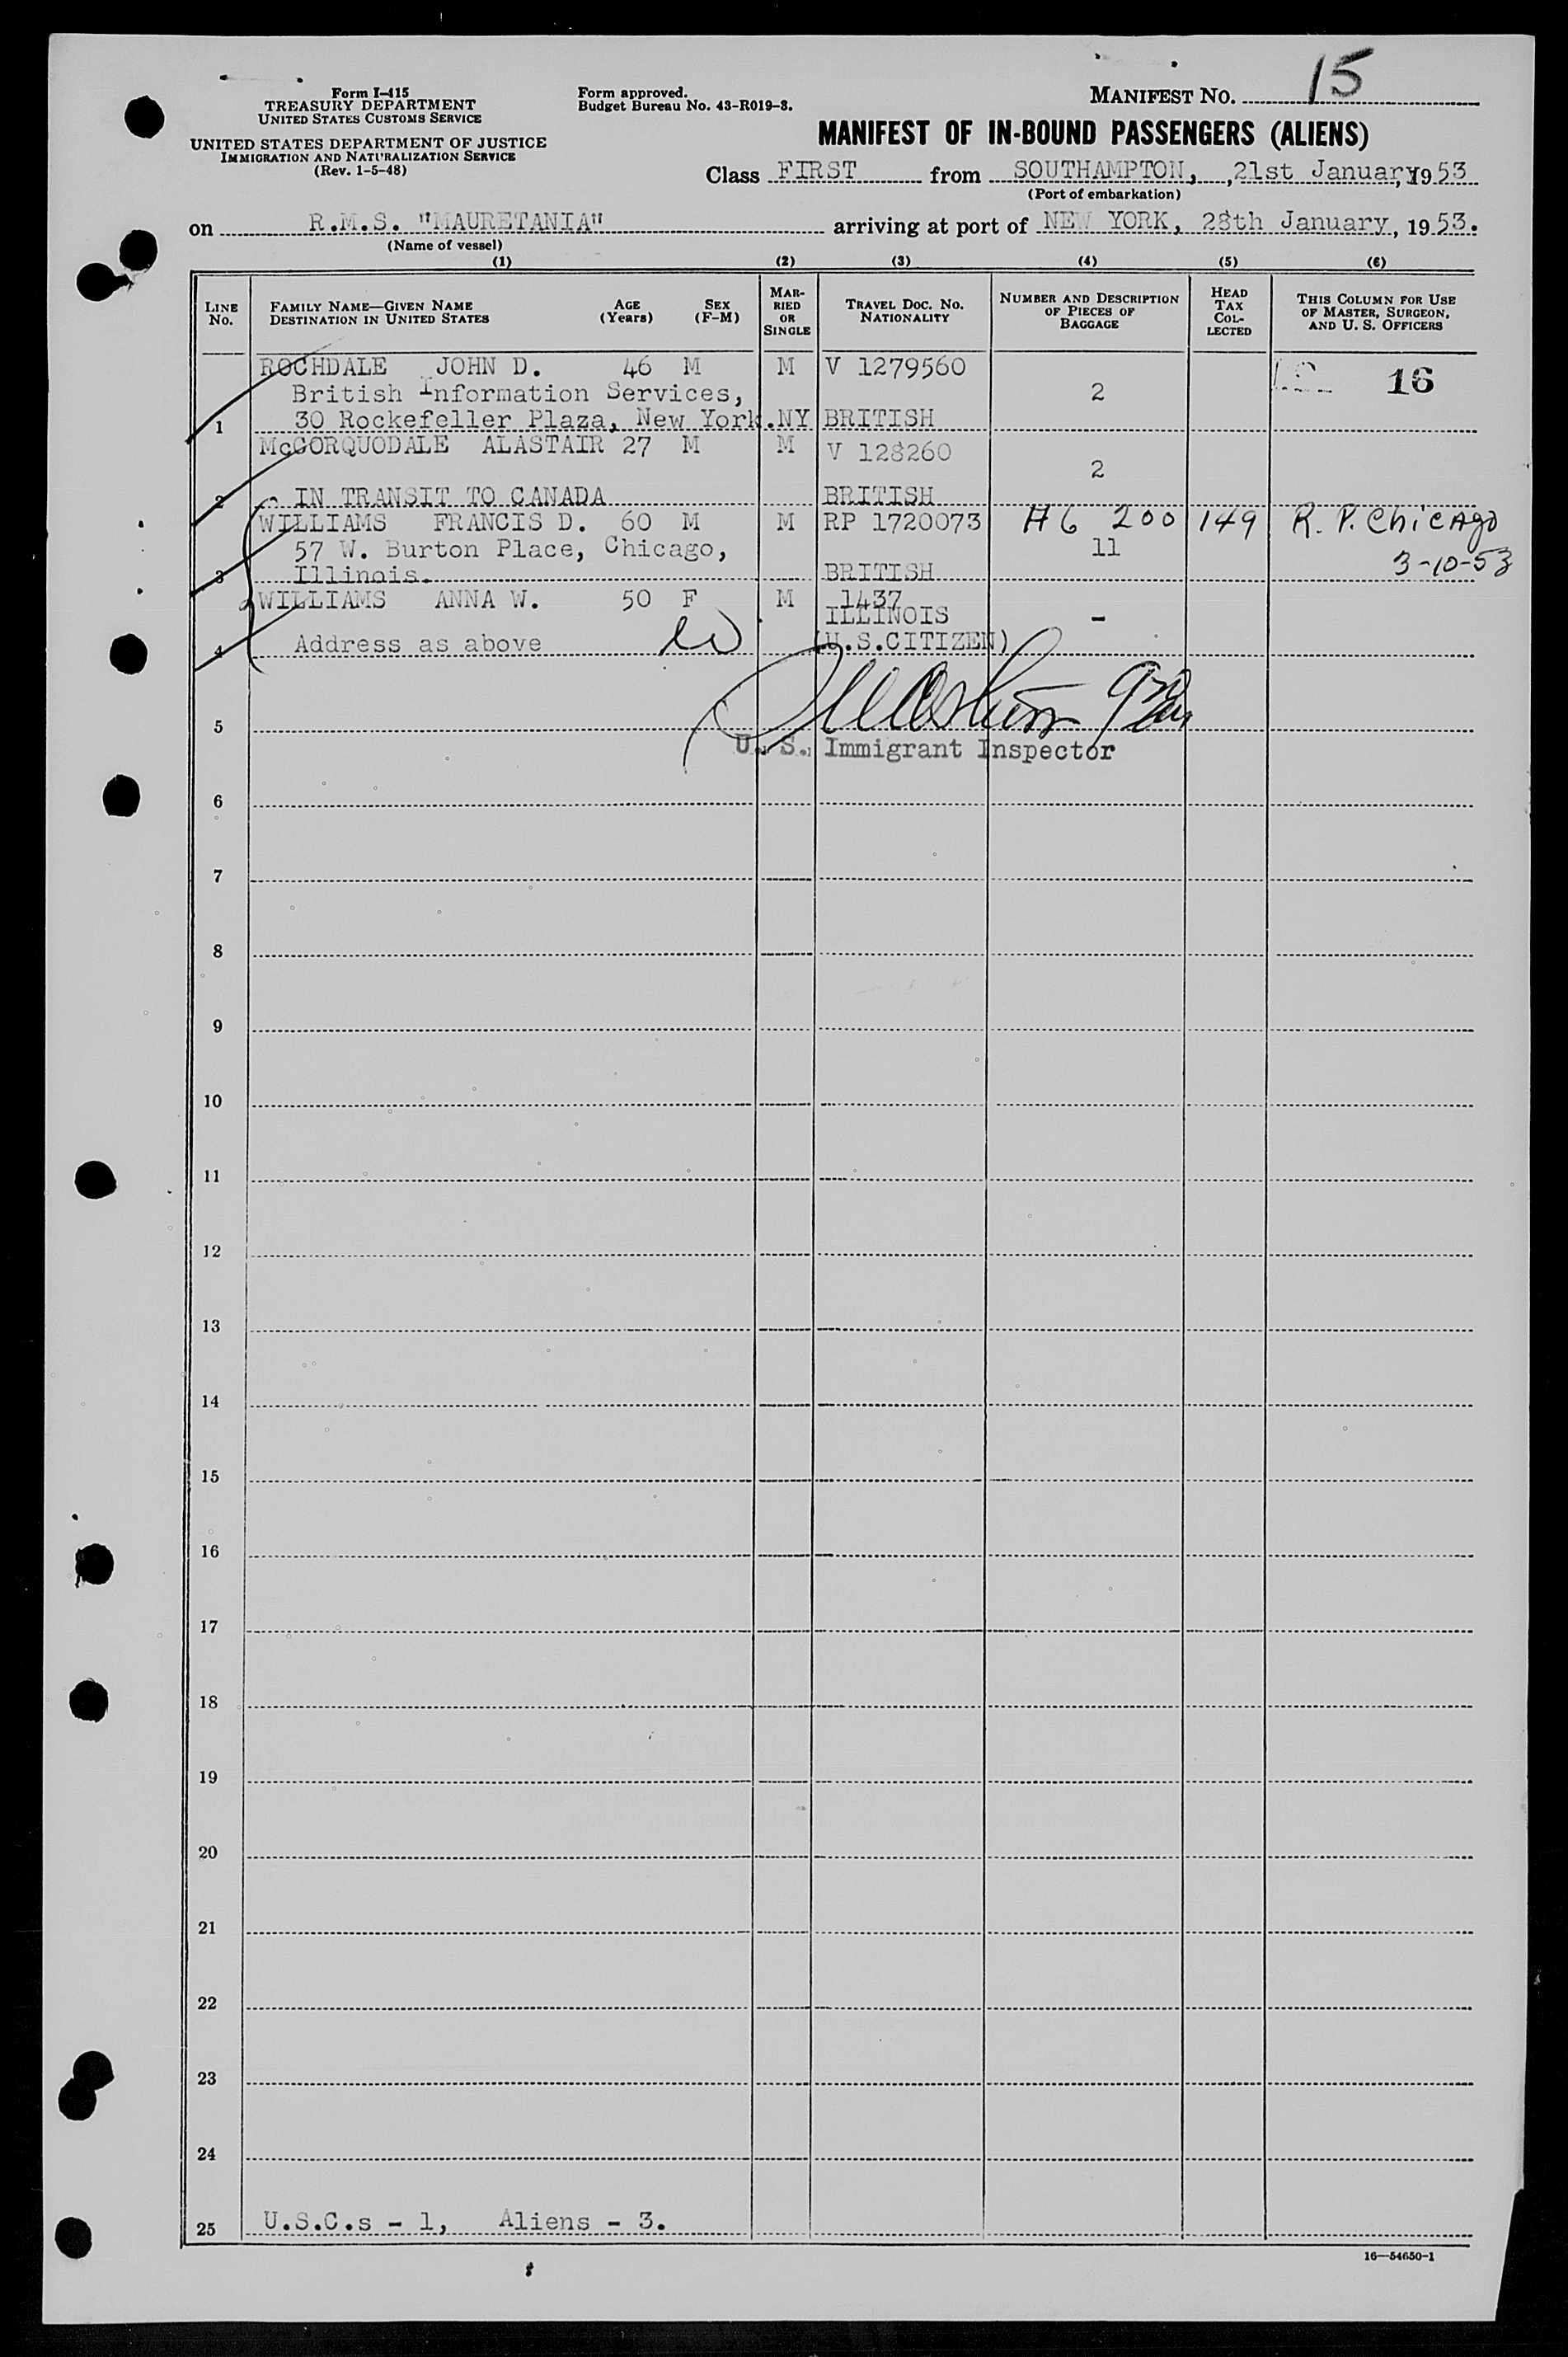 Form I-415
TREASURY DEPARTMENT
UNITED STATES CUSTOMS SERVICE
UNITED STATES DEPARTMENT OF JUSTICE
IMMIGRATION AND NATURALIZATION SERVICE
(Rev. 1-5-48)
Form approved.
Budget Bureau No. 43-R019-3.
MANIFEST NO. 15
MANIFEST OF IN-BOUND PASSENGERS (ALIENS)
Class FIRST from SOUTHAMPTON, , 21st January, 1953
(Port of embarkation)
on R.M.S. "MAURETANIA" arriving at port of NEW YORK, 28th January, 1953.
(Name of vessel)
(1) (2) (3) (4) (5) (6)
LINE NO.
FAMILY NAME—GIVEN NAME
DESTINATION IN UNITED STATES
AGE (Years)
SEX (F-M)
MARRIED OR SINGLE
TRAVEL DOC. NO.
NATIONALITY
NUMBER AND DESCRIPTION OF PIECES OF BAGGAGE
HEAD TAX COLLECTED
THIS COLUMN FOR USE OF MASTER, SURGEON, AND U. S. OFFICERS
ROCHDALE JOHN D. 46 M M V 1279560 16
British Information Services, 2
1 30 Rockefeller Plaza, New York.NY BRITISH
McCORQUODALE ALASTAIR 27 M M V 128260
2
2 IN TRANSIT TO CANADA BRITISH
WILLIAMS FRANCIS D. 60 M M RP 1720073 H6 200 149 R. P. Chicago
57 W. Burton Place, Chicago, 11 3-10-53
3 Illinois. BRITISH
WILLIAMS ANNA W. 50 F M 1437
ILLINOIS -
4 Address as above (U.S.CITIZEN)
5
U. S. Immigrant Inspector
6
7
8
9
10
11
12
13
14
15
16
17
18
19
20
21
22
23
24
25 U.S.C.s - 1, Aliens - 3.
16—54650-1